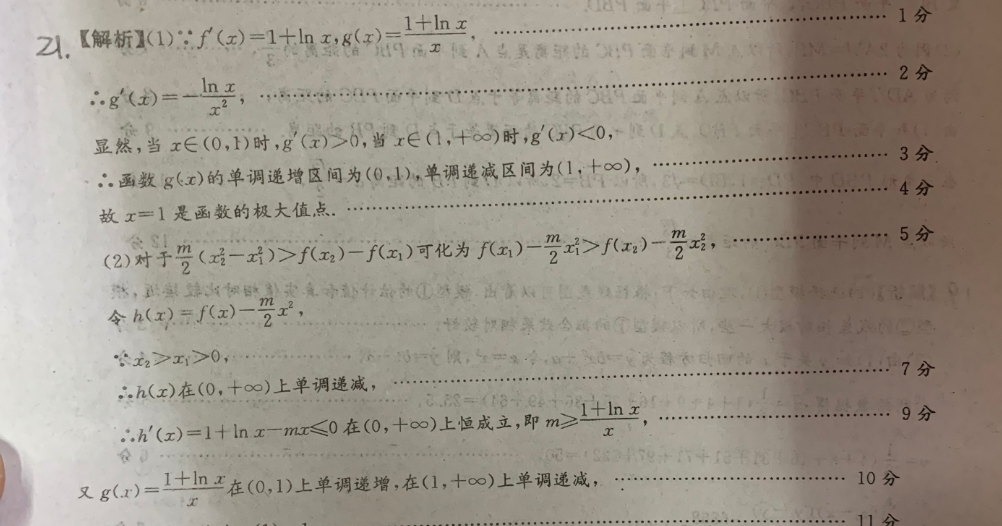 21.【解析】(1)∵f′(x)=1+ln x,g(x)=\frac{1+ln x}{x},……1分
∴g′(x)=-\frac{ln x}{x²},……2分
显然,当x∈(0,1)时,g′(x)>0,当x∈(1,+∞)时,g′(x)<0,
∴函数g(x)的单调递增区间为(0,1),单调递减区间为(1,+∞),……3分
故x=1是函数的极大值点.……4分
(2)对于\frac{m}{2}(x₂²-x₁²)>f(x₂)-f(x₁)可化为f(x₁)-\frac{m}{2}x₁²>f(x₂)-\frac{m}{2}x₂²,……5分
令h(x)=f(x)-\frac{m}{2}x²,
∵x₂>x₁>0,
∴h(x)在(0,+∞)上单调递减,……7分
∴h′(x)=1+ln x-mx≤0在(0,+∞)上恒成立,即m≥\frac{1+ln x}{x},……9分
又g(x)=\frac{1+ln x}{x}在(0,1)上单调递增,在(1,+∞)上单调递减,……10分
……11分